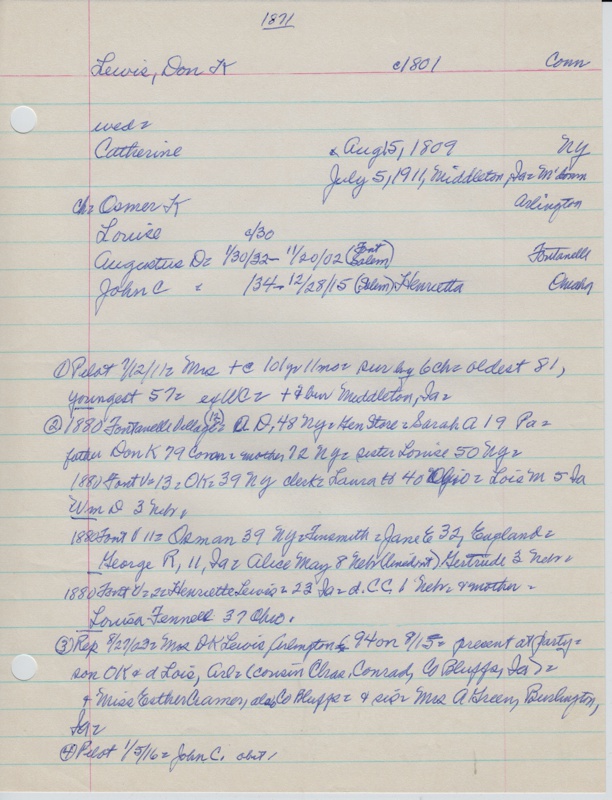 1871
Lewis, Don K c1801 Conn
wed =
Catherine Aug 5, 1809 Ny
July 5, 1911, Middleton, Ia =
ch = Osmer K Arlington
Louise c/30
Augustus D = 1/30/32 - 11/20/02 (Font Salem) Fontanelle
John C = /34 - 12/28/15 (Salem) Henrietta Omaha
① Pilot 7/12/11 = Mrs + @ 101 yr 11 mos = sur by 6 ch = oldest 81,
youngest 57 = ex WC = + & bur Middleton, Ia =
② 1880 Fontanelle Village (12) = A.D, 48 Ny = Gen Store = Sarah A 19 Pa =
father Don K 79 Conn = mother 72 Ny = sister Louise 50 Ny =
1880 Font V = 13 = OK = 39 Ny clerk = Laura 40 Ohio = Lois M 5 Ia
Wm D 3 Nebr.
1880 Font V 11 = Osman 39 Ny = Tinsmith = Jane E 32, England =
George R, 11, Ia = Alise May 8 Nebr Gertrude 3 Nebr =
1880 Font V = 2 = Henriette Lewis = 23 Ia = d. CC, 1 Nebr. & mother =
Louisa Fennell 37 Ohio.
③ Rep 8/27/03 = Mrs DK Lewis, Arlington 94 on 8/15 = present at party =
son OK & d Lois, Arl = (cousin Chas. Conrad, Co Bluffs, Ia) =
& Miss Esther Cramer, also Co Bluffs = & sis = Mrs A Green, Burlington,
Ia =
④ Pilot 1/5/16 = John C. obit,